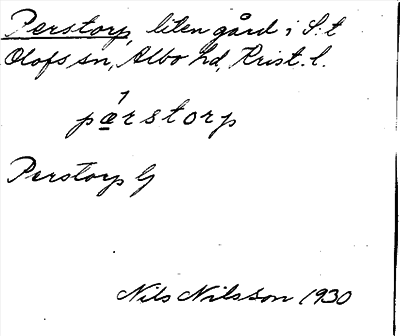 Perstorp, liten gård i S:t
Olofs sn, Albo hd, Krist. l.
pærstorp
Perstorp G
Nils Nilsson 1930